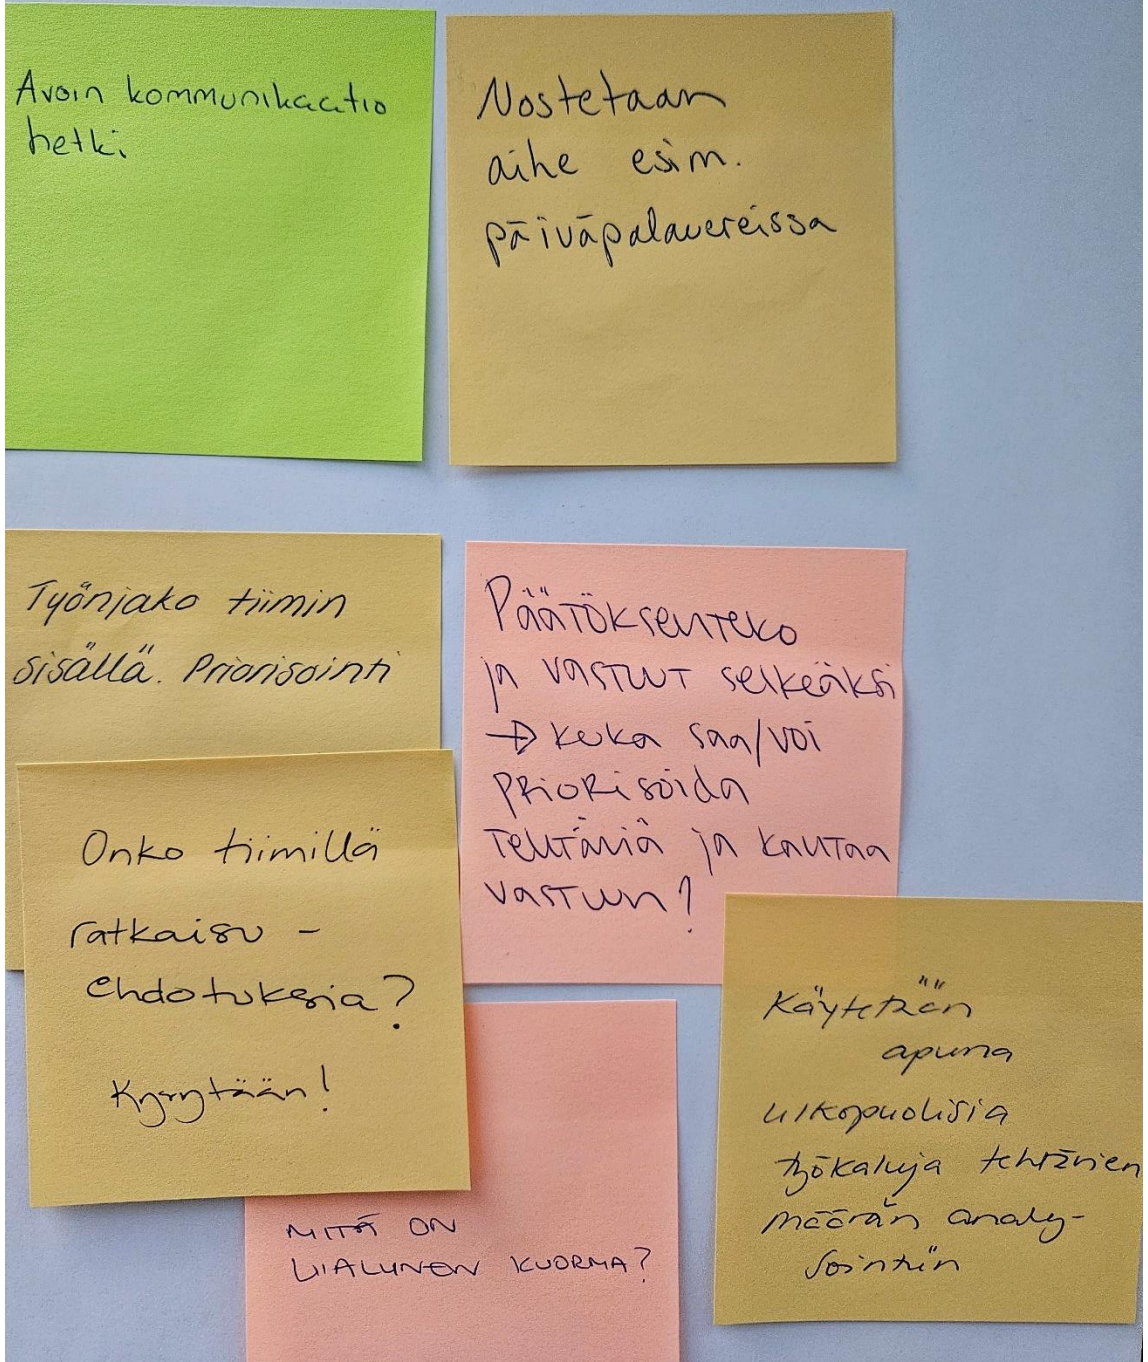 Avoin kommunikaatio
hetki
Nostetaan
aihe esim.
päiväpalavereissa
Työnjako tiimin
sisällä. Priorisointi
Päätöksenteko
ja vastuut selkeäksi
→ kuka saa/voi
priorisoida
tehtäviä ja kantaa
vastuun?
Onko tiimillä
ratkaisu -
ehdotuksia?
Kysytään!
MITÄ ON
LIIALLINEN KUORMA?
Käytetään
apuna
ulkopuolisia
työkaluja tehtävien
määrän analy-
sointiin